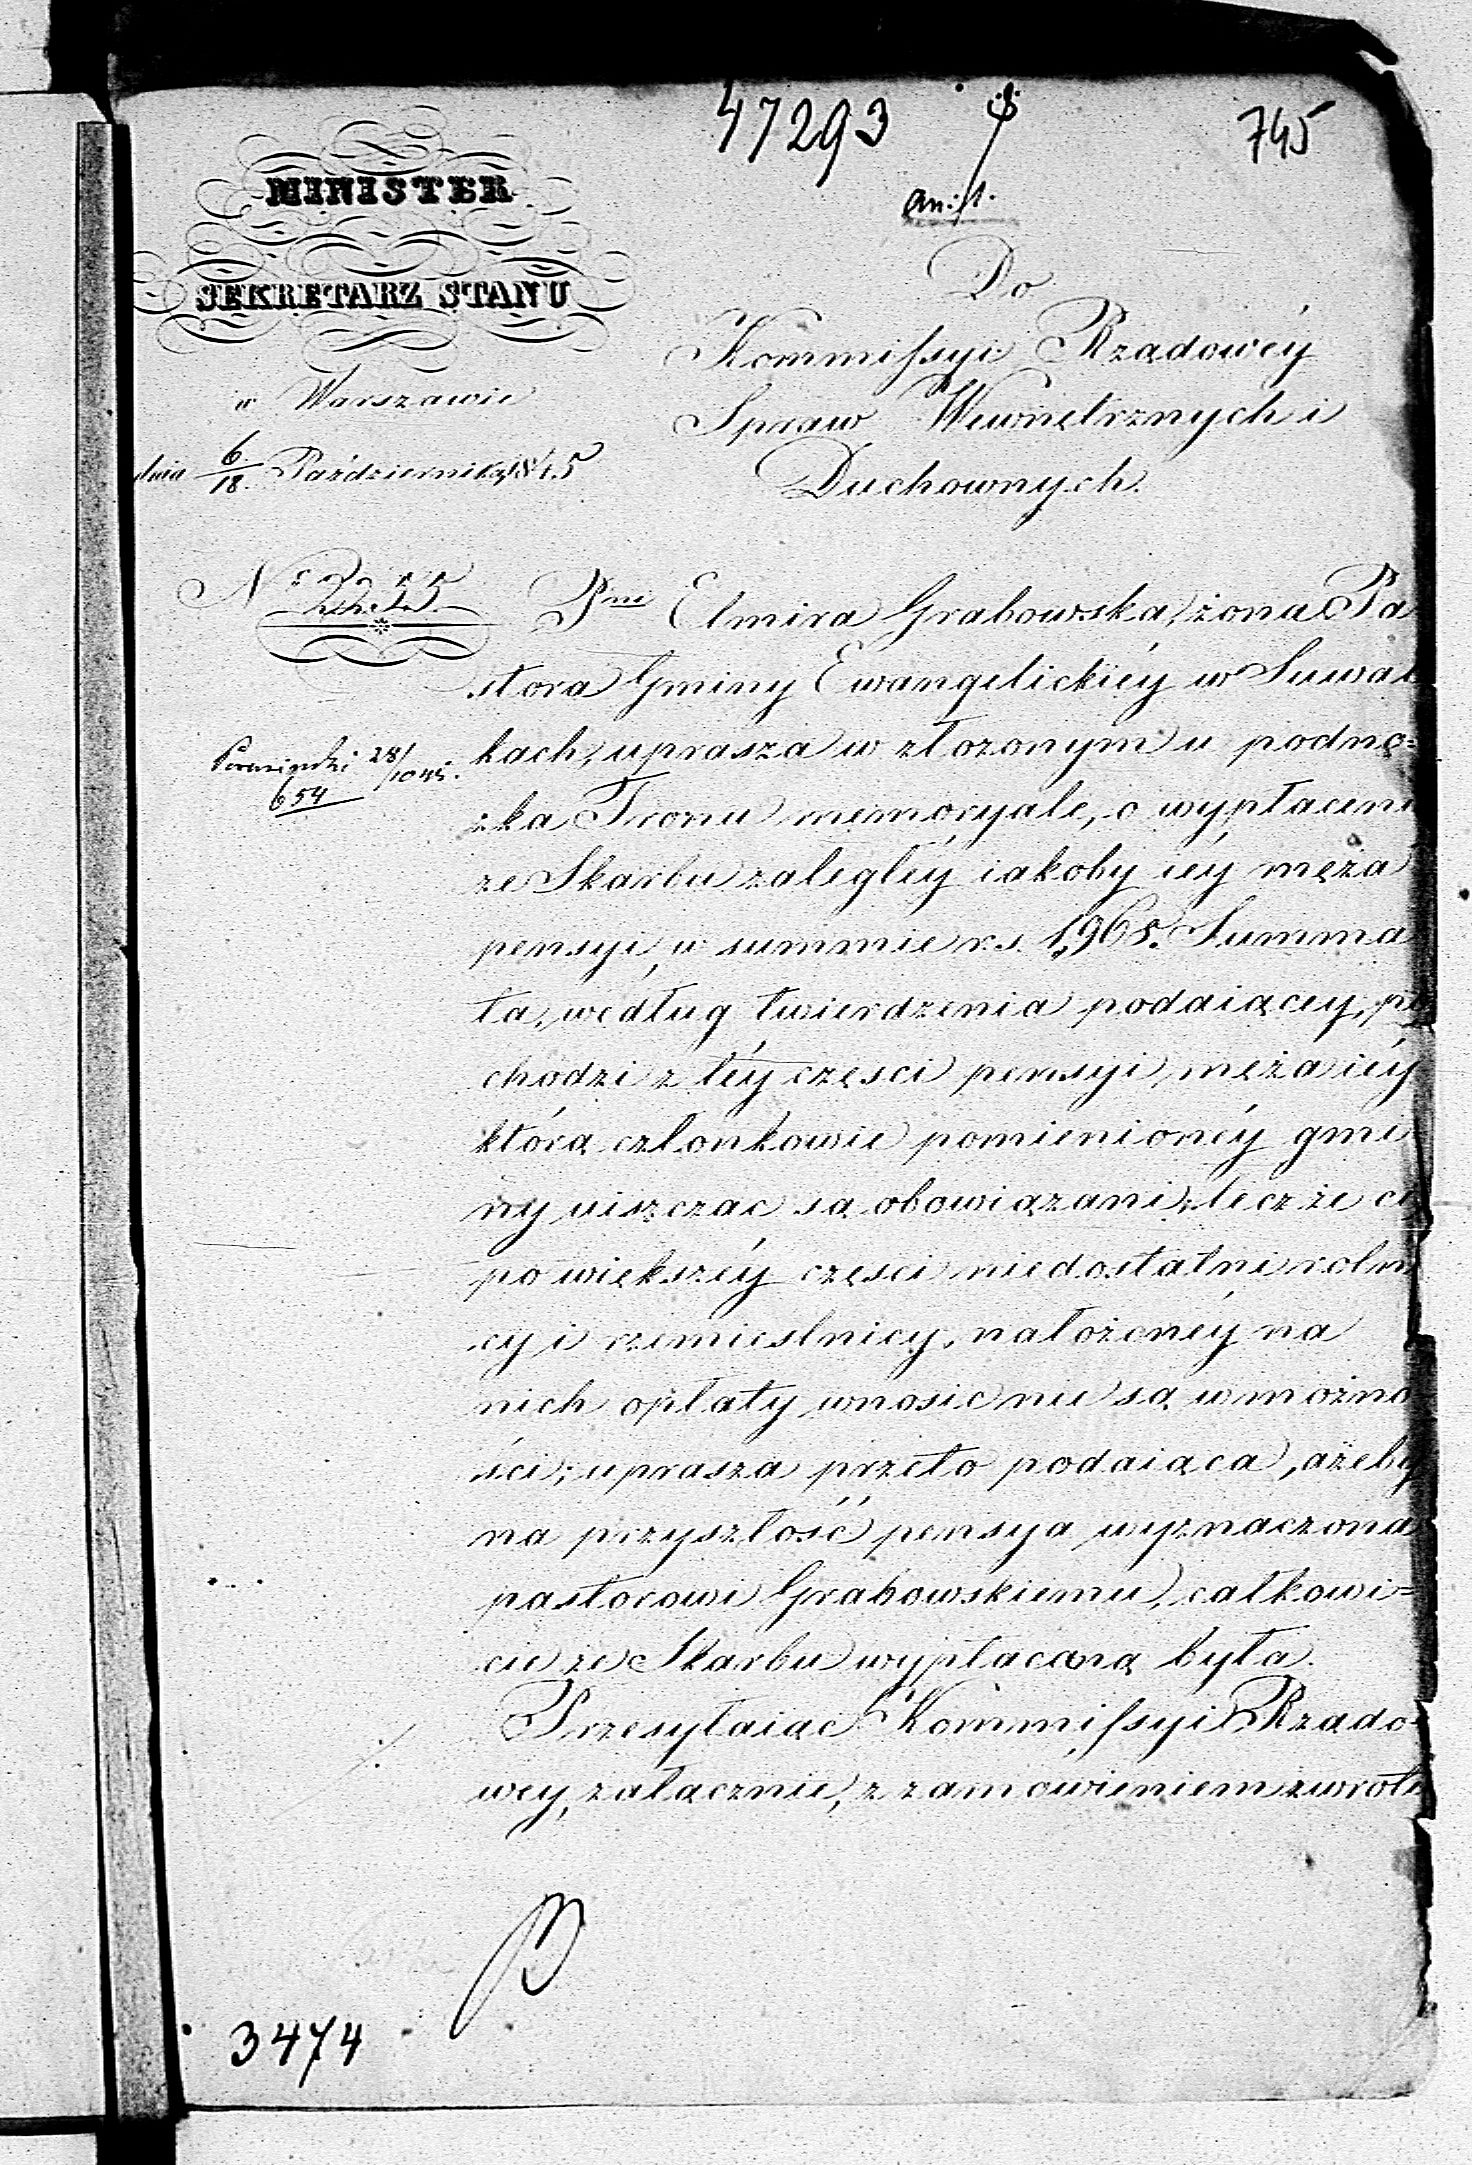 47293
745
an: 1.
MINISTER
SEKRETARZ STANU
w Warszawie
dnia 6/18 Października 1845
Do
Kommissyi Rządowéy
Spraw Wewnętrznych i
Duchownych.
Nr
28/10 45.
654
Pni Elmira Grabowska, żona Pa
stora Gminy Ewangelickiéy w Suwał
kach, uprasza w złożonym u podnó=
żka Tronu memoryale, o wypłaceni
ze Skarbu zaległéy iakoby iéy męża
pensyi, w summie r.s. 1,965. Summa
ta, według twierdzenia podaiącey, po
chodzi z téy części pensyi męża iéy
którą członkowie pomienionéy gmi
ny uiszczać są obowiązani; lecz że ci
po większéy części niedostatni rolni
cy i rzemieślnicy, nałożonéy na
nich opłaty wnosić nie są w możno
ści; uprasza przeto podaiąca, ażeby
na przyszłość pensya wyznaczona
pastorowi Grabowskiemu, całkowi=
cie ze Skarbu wypłacaną była.
Przesyłaiąc Kommissyi Rządo
wey, załącznie, z zamówieniem zwrotu
3474